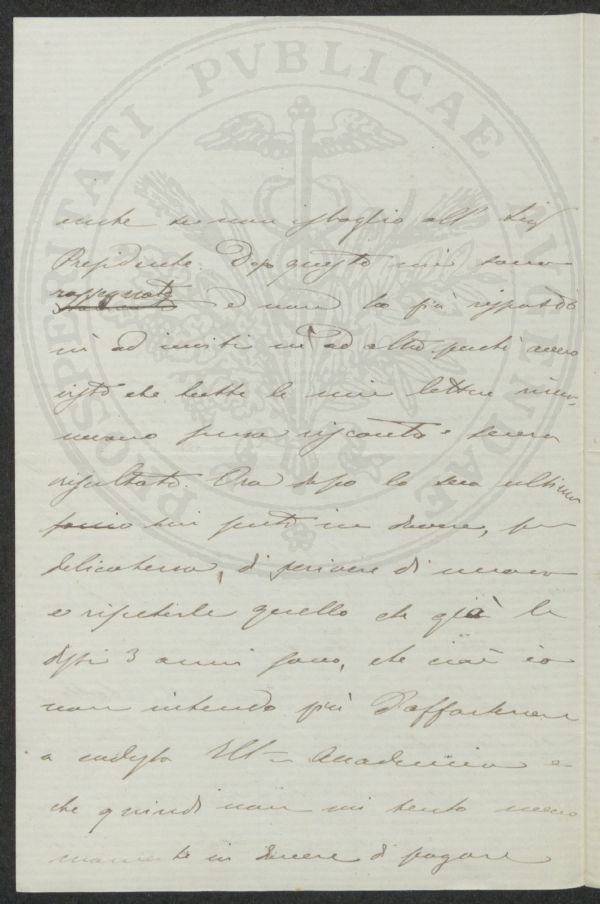 PROSPERITATI PVBLICAE AVGENDAE
anche se non isbaglio all' Sig
Presidente. Dopo questo mi sono
rassegnato e non ho più risposto
nè ad inviti nè ad altro perchè avevo
visto che tutte le mie lettere rima-
nevano senza riscontro e senza
risultato. Ora dopo la sua ultima
mi sento in dovere, per
delicatezza, di scrivere di nuovo
e ripeterle quello che già le
dissi 3 anni sono, che cioè io
non intendo più d'appartenere
a codesta Ill.a Accademia e
che quindi non mi sento meno-
mamente in dovere di pagare